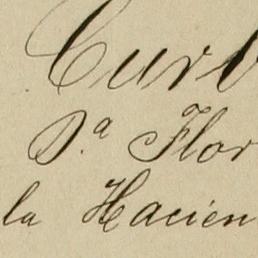 Curb
D.ª Flor
la Hacien